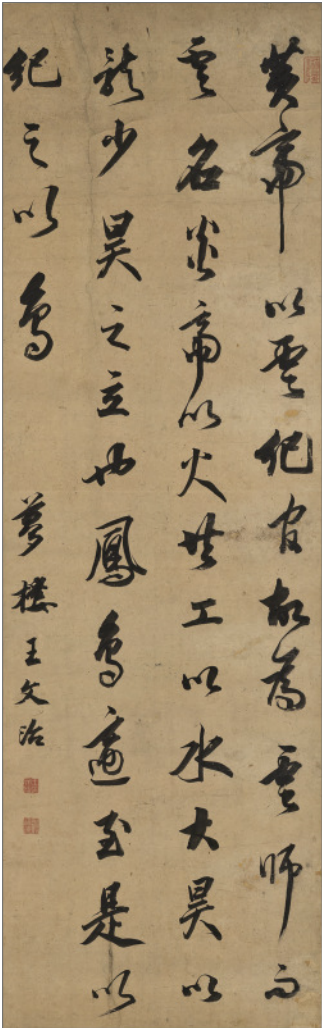 黄帝以雲紀官故為雲師而
雲名炎帝以火共工以水大昊以
龍少昊之立也鳳鳥適至是以
紀之以鳥
夢樓王文治